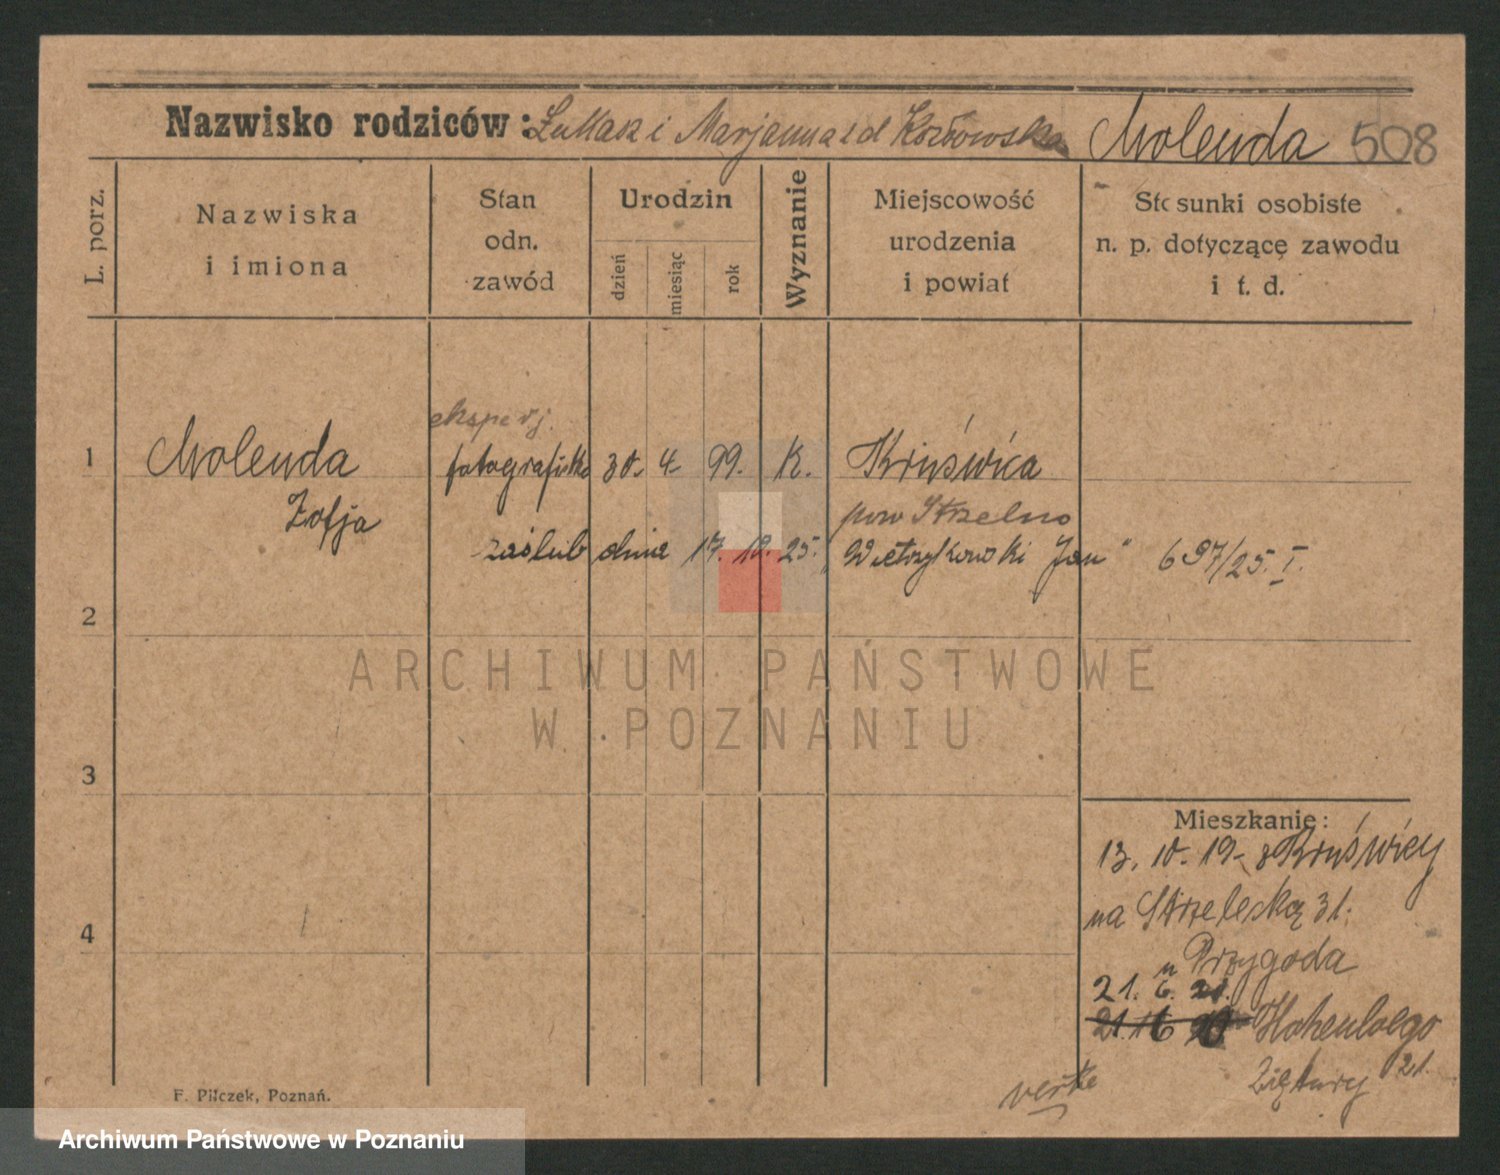 Nazwisko rodziców: Łukasz i Marjanna z d Kozłowska Molenda 508
L. porz.
Nazwiska i imiona
Stan odn. zawód
Urodzin
dzień miesiąc rok
Wyznanie
Miejscowość urodzenia i powiat
Stosunki osobiste n. p. dotyczące zawodu i t. d.
ekspedj.
1 Molenda fotografistka 30. 4. 99. K. Kruświca
Zofja pow Strzelno
zaślub dnia 17. 12. 25. "Wietrzykowski Jan" 697/25. I.
2
ARCHIWUM PAŃSTWOWE
W POZNANIU
3
Mieszkanie:
13. 10. 19 z Kruświcy
na Strzelecką 31.
4
u Przygoda
21. 6. 21.
Hohenloego
21.
Ziętary
verte
F. Pilczek, Poznań.
Archiwum Państwowe w Poznaniu